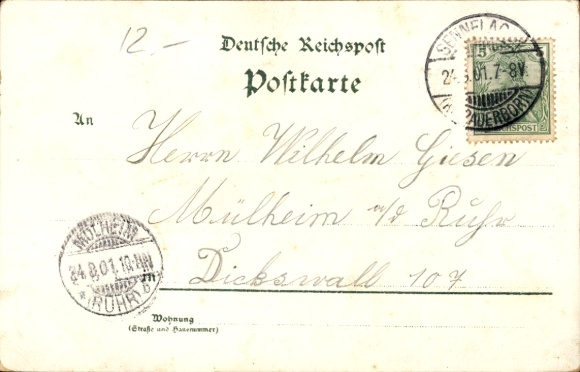 12.-
Deutsche Reichspost
Postkarte
SENNELAG
5
24.8.01.7-8V.
(PADERBORN)
REICHSPOST
An
Herrn Wilhelm Giesen
Mülheim a/d Ruhr
Dickswall 107
MÜLHEIM
24.8.01.10-11V
(RUHR)
Wohnung
(Straße und Hausnummer)